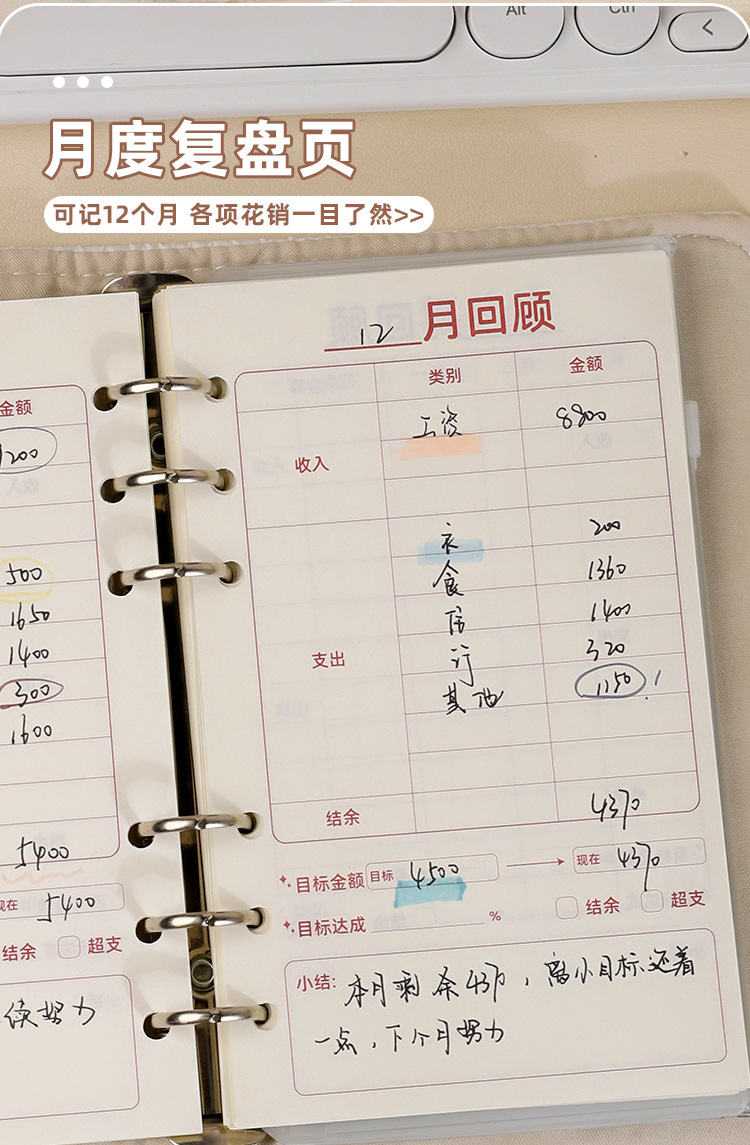 Alt
Ctrl
<
月度复盘页
可记12个月 各项花销一目了然>>
金额
1200
500
1650
1400
300
1600
5400
现在 5400
结余 超支
续努力
12 月回顾
类别 金额
收入
工资 8800
支出
衣 200
食 1360
居 1400
行 320
其他 1150 !
结余 4370
目标金额 目标 4500 现在 4370
目标达成 % 结余 超支
小结: 本月剩余437,离小目标还差
一点,下个月努力